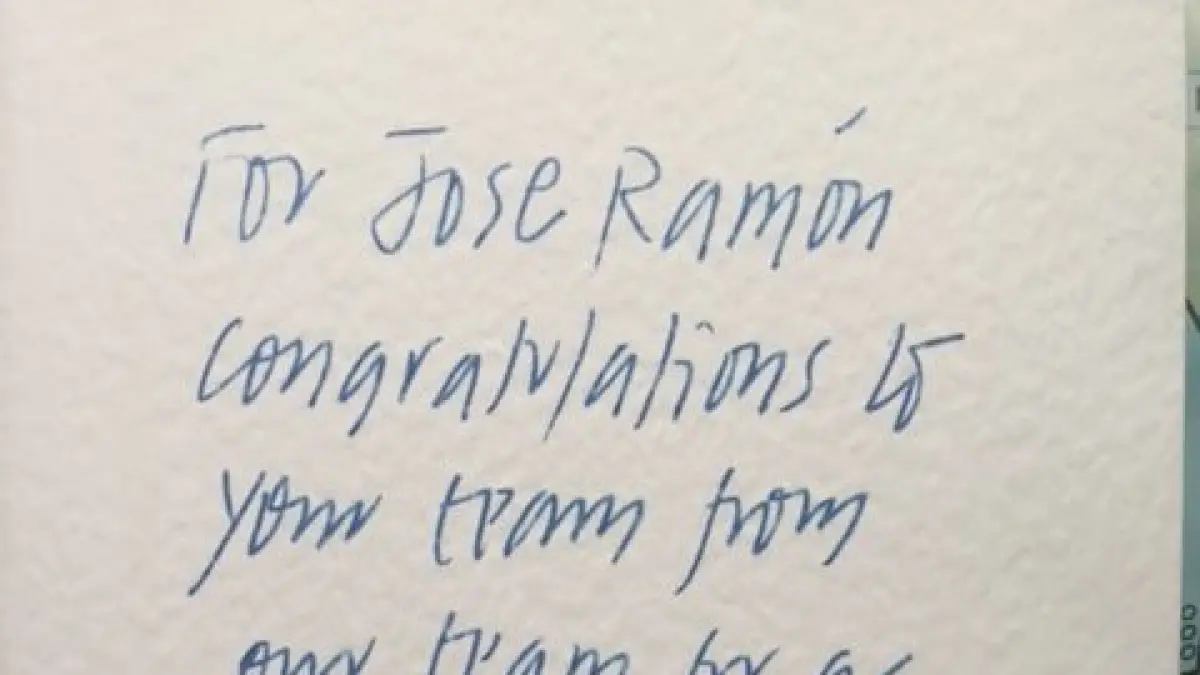 For Jose Ramón
congratulations to
your team from
our team for a